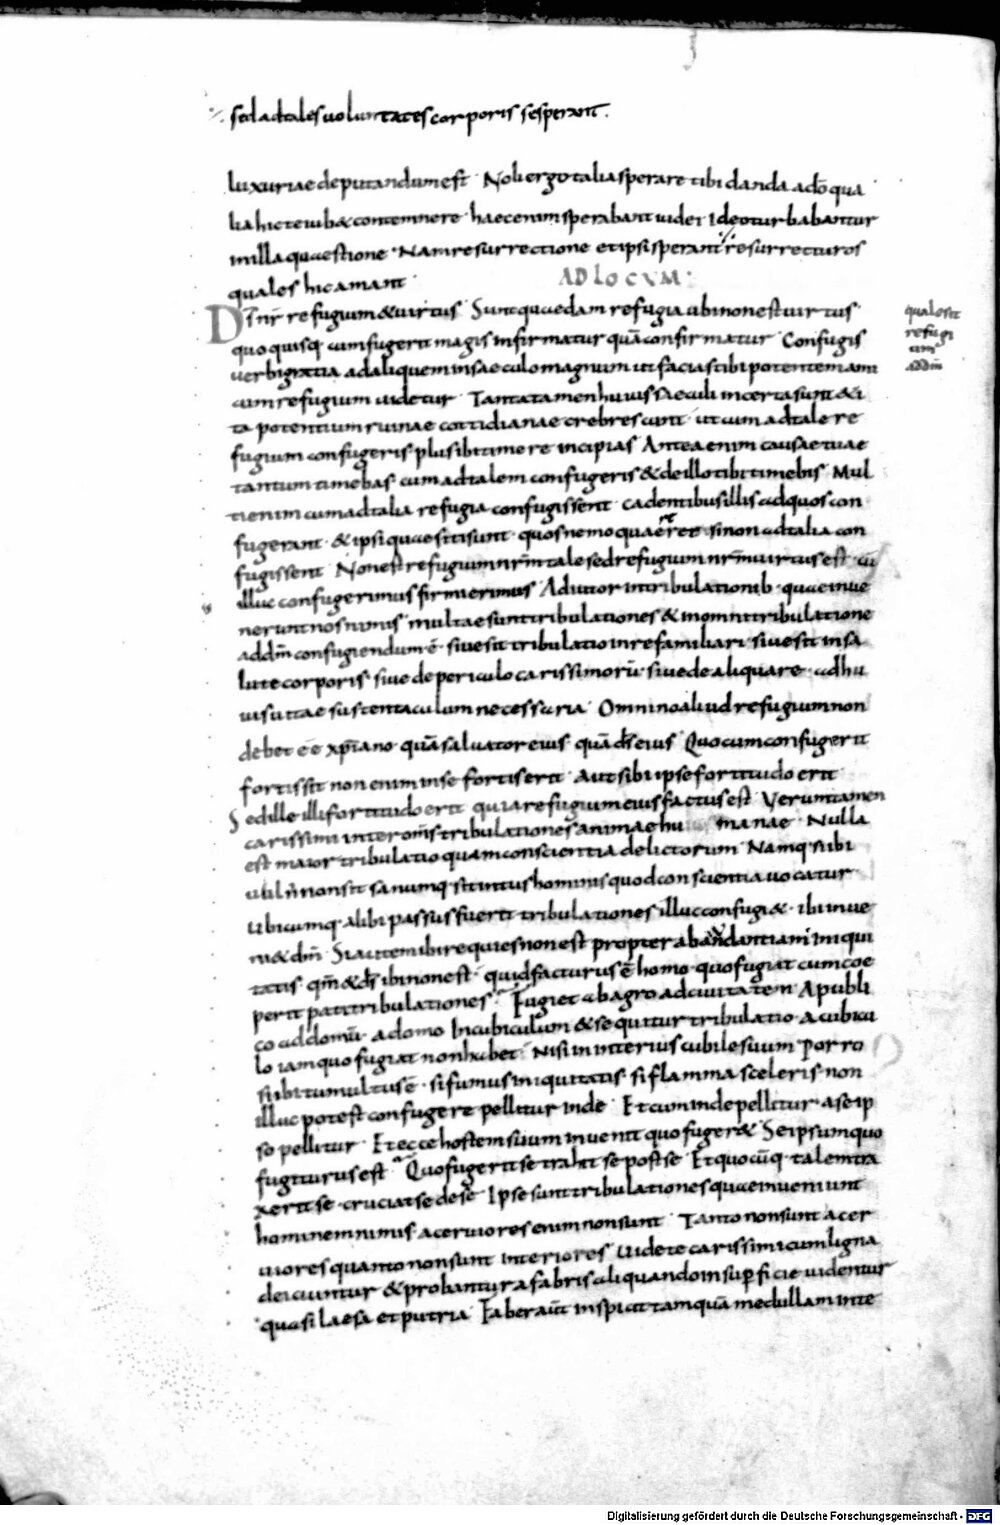 sed ad tales uoluntates corporis se sperant.
luxuriae deputandum est Noli ergo talia sperare tibi danda a do qua
lia hic te iubet contemnere haec enim sperabant iudei Ideo turbabantur
in illa quaestione Nam resurrectione et ipsi sperant resurrecturos
quales hic amant
AD LOCUM:
Ds nr refugium & uirtus Sunt quaedam refugia ubi non est uirtus
quo quisq cum fugerit magis infirmatur quā confirmatur Confugis
uerbi gratia ad aliquem in saeculo magnum ut facias tibi potentem ami
cum refugium uidetur Tanta tamen huius saeculi incerta sunt & i
ta potentium ruinae cottidianae crebrescunt ut cum ad tale re
fugium confugeris plus ibi timere incipias Antea enim causae tuae
tantum timebas cum ad talem confugeris & de illo tibi timebis Mul
ti enim cum ad talia refugia confugissent cadentibus illis ad quos con
fugerant & ipsi quaesiti sunt quos nemo quaereret si non ad talia con
fugissent Non est refugium nrm tale sed refugium nrm uirtus est cū
illuc confugerimus firmi erimus Adiutor in tribulationib quae inue
nerunt nos nimis multae sunt tribulationes & in omni tribulatione
ad dm confugiendum ē siue sit tribulatio in re familiari siue sit in sa
lute corporis siue de periculo carissimorū siue de aliqua re ad hu
ius uitae sustentaculum necessaria Omnino aliud refugium non
debet eē xpiano quā saluator eius quā ds eius Quo cum confugerit
fortis sit non enim in se fortis erit Aut sibi ipse fortitudo erit
Sed ille illi fortitudo erit quia refugium eius factus est Verumtamen
carissimi inter omis tribulationes animae hu manae Nulla
est maior tribulatio quam conscientia delictorum Namq si ibi
uuln non sit sanumq sit intus hominis quod conscientia uocatur
Ubicumq alibi passus fuerit tribulationes illuc confugi& ibi inue
ni& dm Si autem ibi requies non est propter abandantiam iniqui
tatis qm & ds ibi non est quid facturus ē homo quo fugiat cum coe
perit pati tribulationes Fugiet ab agro ad ciuitatem A publi
co ad domū a domo In cubiculum & sequitur tribulatio A cubicu
lo iam quo fugiat non habet Nisi in interius cubile suum Porro
si ibi tumultus ē si fumus iniquitatis si flamma sceleris non
illuc potest confugere pellitur inde Et cum inde pellitur a se ip
so pellitur Et ecce hostem suum inuenit quo fuger& Se ipsum quo
fugiturus est Quo fugerit se trahit se post se Et quocūq talem tra
xerit se cruciat se de se Ipse sunt tribulationes quae inueniunt
hominem nimis acerbiores enim non sunt Tanto non sunt acer
uiores quanto non sunt interiores Uidete carissimi cum ligna
deiciuntur & probantur a fabris aliquando in superficie uidentur
quasi laesa et putria Faber aūt inspicit tamquā medullam inte
qualesit
refugi
um
addm